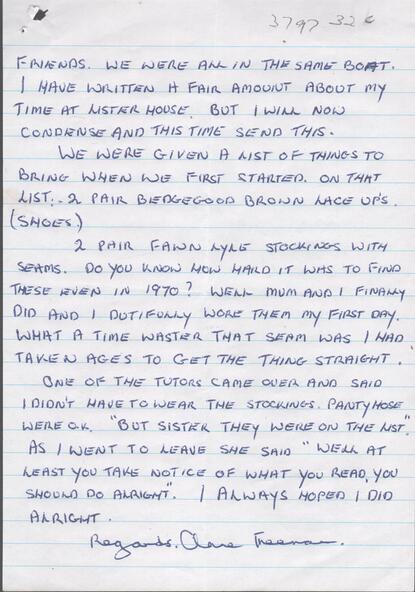 3797 32c
FRIENDS. WE WERE ALL IN THE SAME BOAT.
I HAVE WRITTEN A FAIR AMOUNT ABOUT MY
TIME AT LISTER HOUSE. BUT I WILL NOW
CONDENSE AND THIS TIME SEND THIS.
WE WERE GIVEN A LIST OF THINGS TO
BRING WHEN WE FIRST STARTED. ON THAT
LIST:- 2 PAIR BEDGEGOOD BROWN LACE UP'S.
(SHOES.)
2 PAIR FAWN LYLE STOCKINGS WITH
SEAMS. DO YOU KNOW HOW HARD IT WAS TO FIND
THESE EVEN IN 1970? WELL MUM AND I FINALLY
DID AND I DUTIFULLY WORE THEM MY FIRST DAY.
WHAT A TIME WASTER THAT SEAM WAS I HAD
TAKEN AGES TO GET THE THING STRAIGHT.
ONE OF THE TUTORS CAME OVER AND SAID
I DIDN'T HAVE TO WEAR THE STOCKINGS. PANTYHOSE
WERE OK. "BUT SISTER THEY WERE ON THE LIST."
AS I WENT TO LEAVE SHE SAID "WELL AT
LEAST YOU TAKE NOTICE OF WHAT YOU READ, YOU
SHOULD DO ALRIGHT". I ALWAYS HOPED I DID
ALRIGHT.
Regards. Clare Freeman.